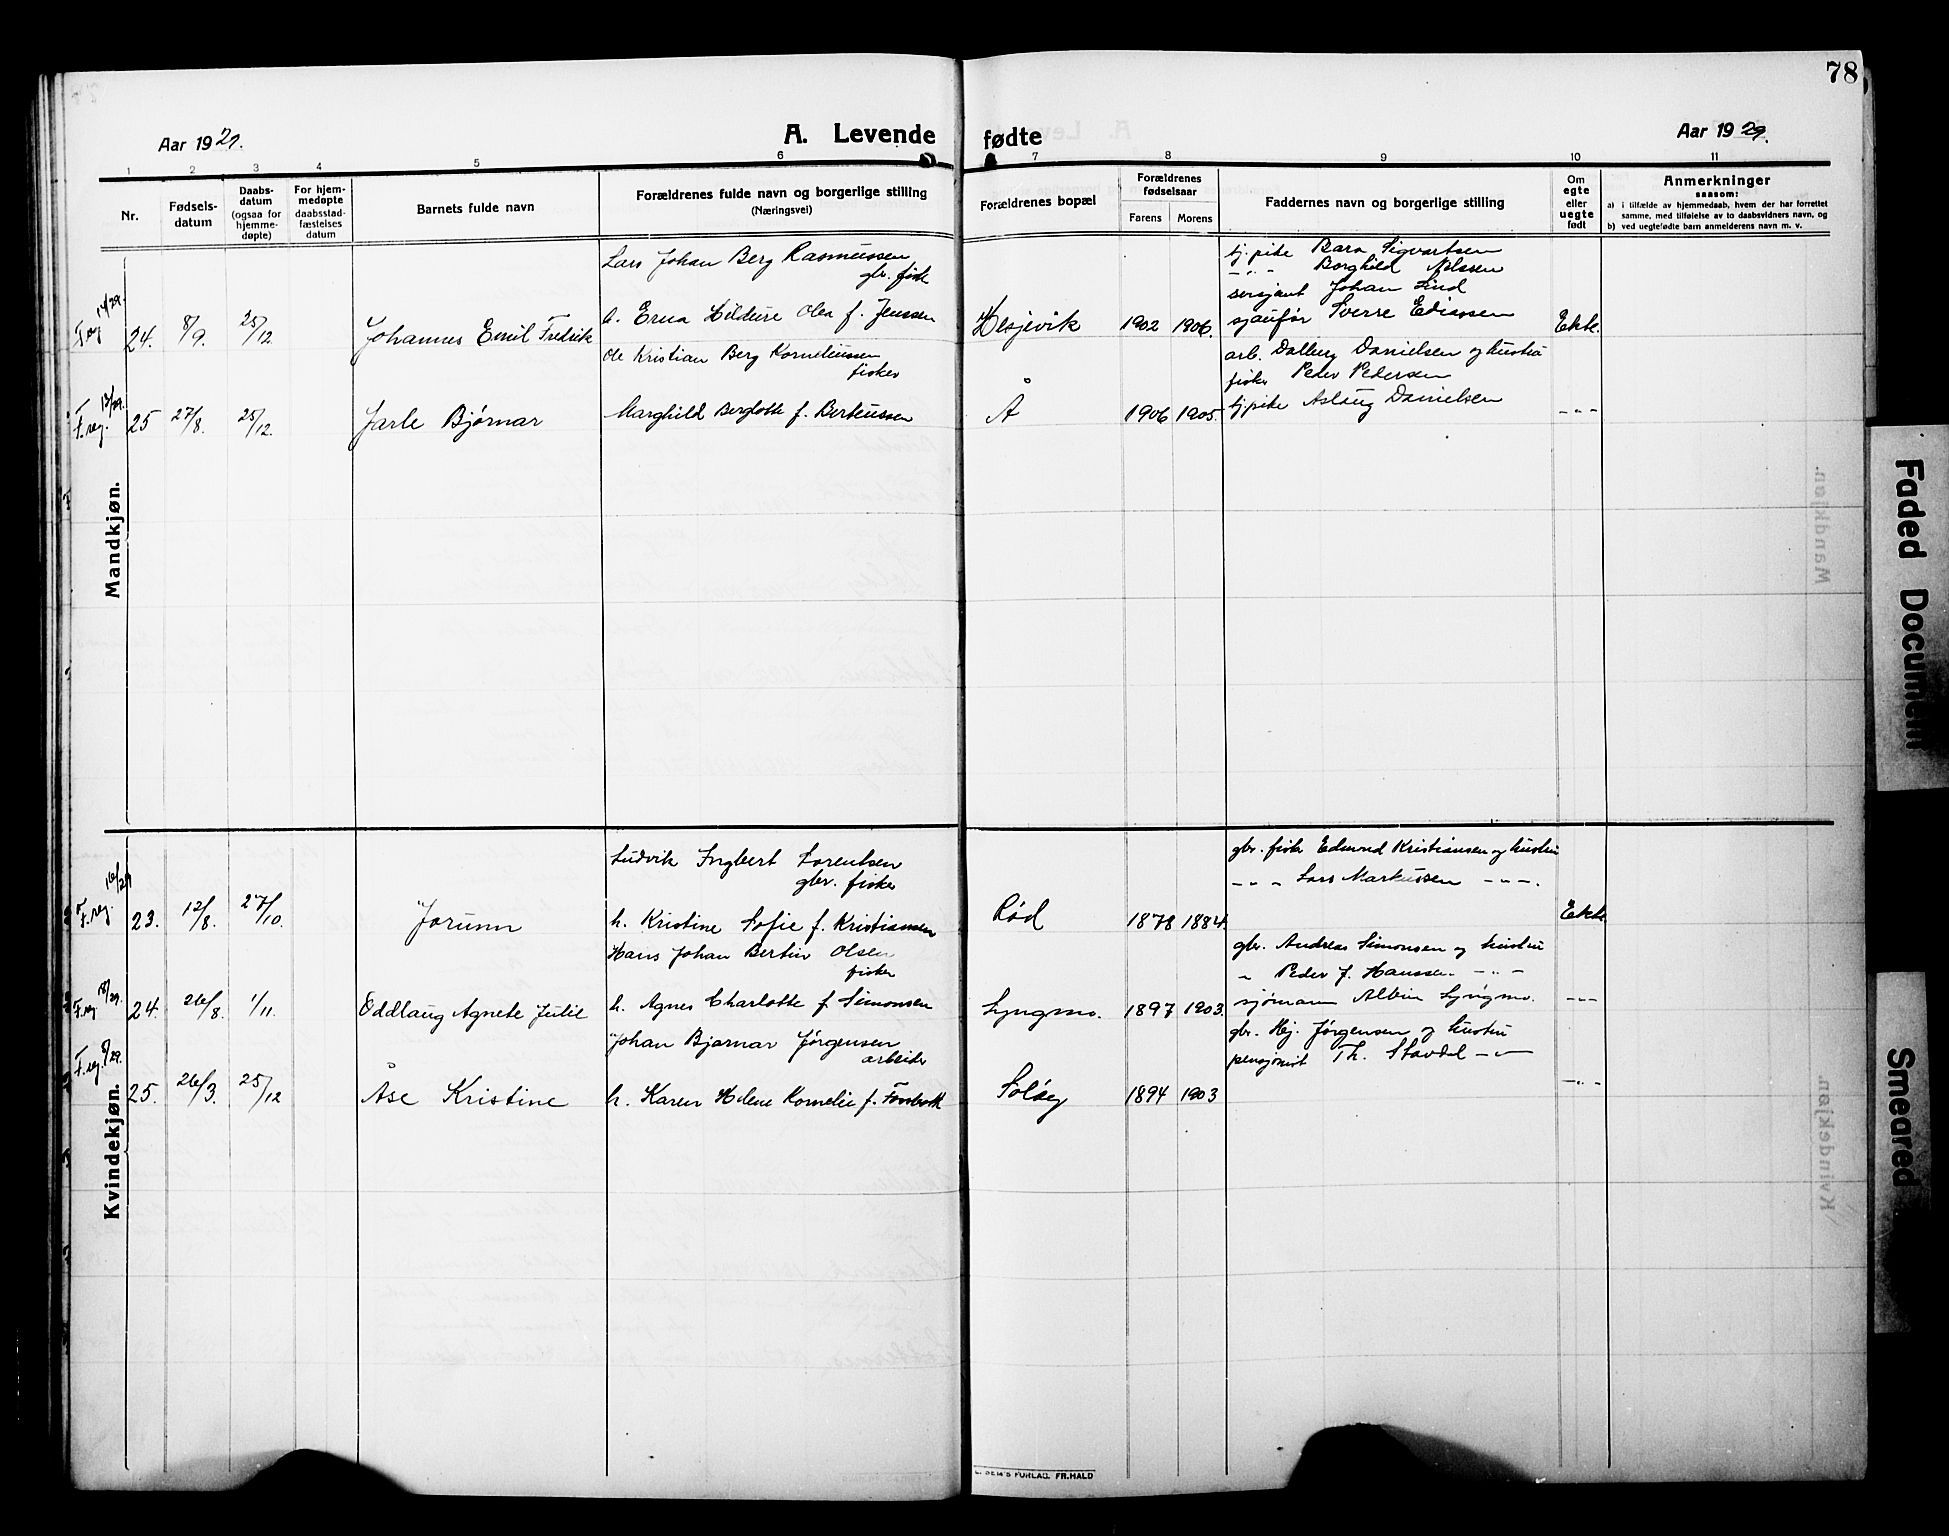 78
Aar 1929.
A. Levende fødte
Aar 1929.
1 2 3 4 5 6 7 8 9 10 11
Nr.
Fødsels-
datum
Daabs-
datum
(ogsaa for
hjemme-
døpte)
For hjem-
medøpte
daabsstad-
fæstelses
datum
Barnets fulde navn
Forældrenes fulde navn og borgerlige stilling
(Næringsvei)
Forældrenes bopæl
Forældrenes
fødselsaar
Farens Morens
Faddernes navn og borgerlige stilling
Om
egte
eller
uegte
født
Anmerkninger
saasom:
a) i tilfælde av hjemmedaab, hvem der har forrettet
samme, med tilføielse av to daabsvidners navn, og
b) ved uegtefødte barn anmelderens navn m. v.
Mandkjøn.
F. reg 14/29.
24. 8/9. 25/12 Johannes Emil Fredrik
Lars Johan Berg Rasmussen
gbr. fisk
h. Erna Hildure Olea f. Jenssen
Hesjevik 1902 1906.
tj. pike Bara Sigvartsen
— " — Borghild Nilssen
sersjant Johan Lind
sjaufør Sverre Ediassen
Ekte.
F. reg. 13/29.
25 27/8. 25/12. Jarle Bjørnar
Ole Kristian Berg Korneliussen
fisker
Marghild Berglotte f. Berteussen
Å 1906 1905.
arb. Dalberg Danielsen og hustru
fisker Peder Pedersen
tj.pike Aslaug Danielsen
— " —
Kvindekjøn.
F. reg. 16/29
23. 12/8. 27/10. Jorunn
Ludvik Ingbert Lorentsen
gbr. fisker
h. Kristine Sofie f. Kristiansen
Rød 1878 1884.
gbr. fisker Edmund Kristiansen og hustru
— " — Lars Markussen — " —.
Ekte
F. reg 18/29.
24. 26/8. 1/11. Oddlaug Agnete Julie
Hans Johan Bertin Olsen
fisker
h. Agnes Charlotte f Simonsen
Lyngmo. 1897 1903.
gbr. Andreas Simonsen og hustru
" Peder J. Hanssen — " —
sjømann Albin Lyngmo.
— " —
F. reg. 9/29.
25. 26/3. 25/12 Åse Kristine
Johan Bjarnar Jørgensen
arbeider
h. Karen Helene Kornelie f.
Soløy 1894 1903
gbr. Hj. Jørgensen og hustru
pensjonist Th. Stavdal — " —
— " —
E. SEM'S FORLAG. FR.HALD
Faded Document
Smeared